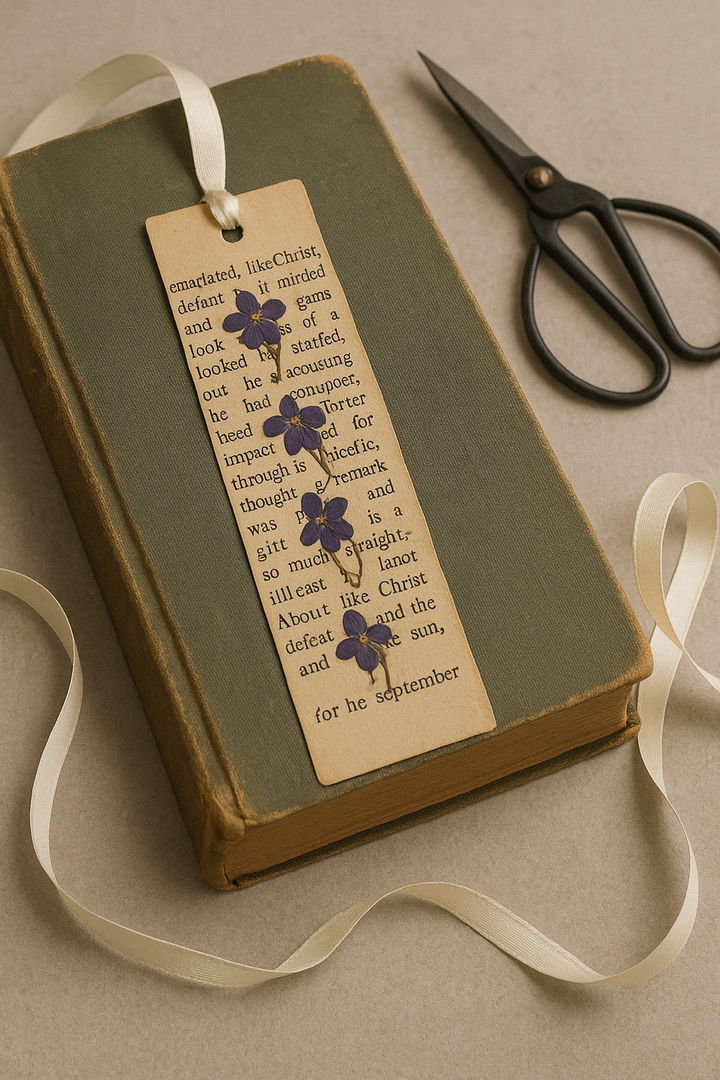 emarlated, like Christ,
defant it mirded
and gams
look ss of a
looked ba statfed,
out he s acousung
he had conupoer,
heed Torter
impact ed for
through is hicefic,
thought g remark
was p and
gitt is a
so much straight,
illl east lanot
About like Christ
defeat and the
and ke sun,
for he september